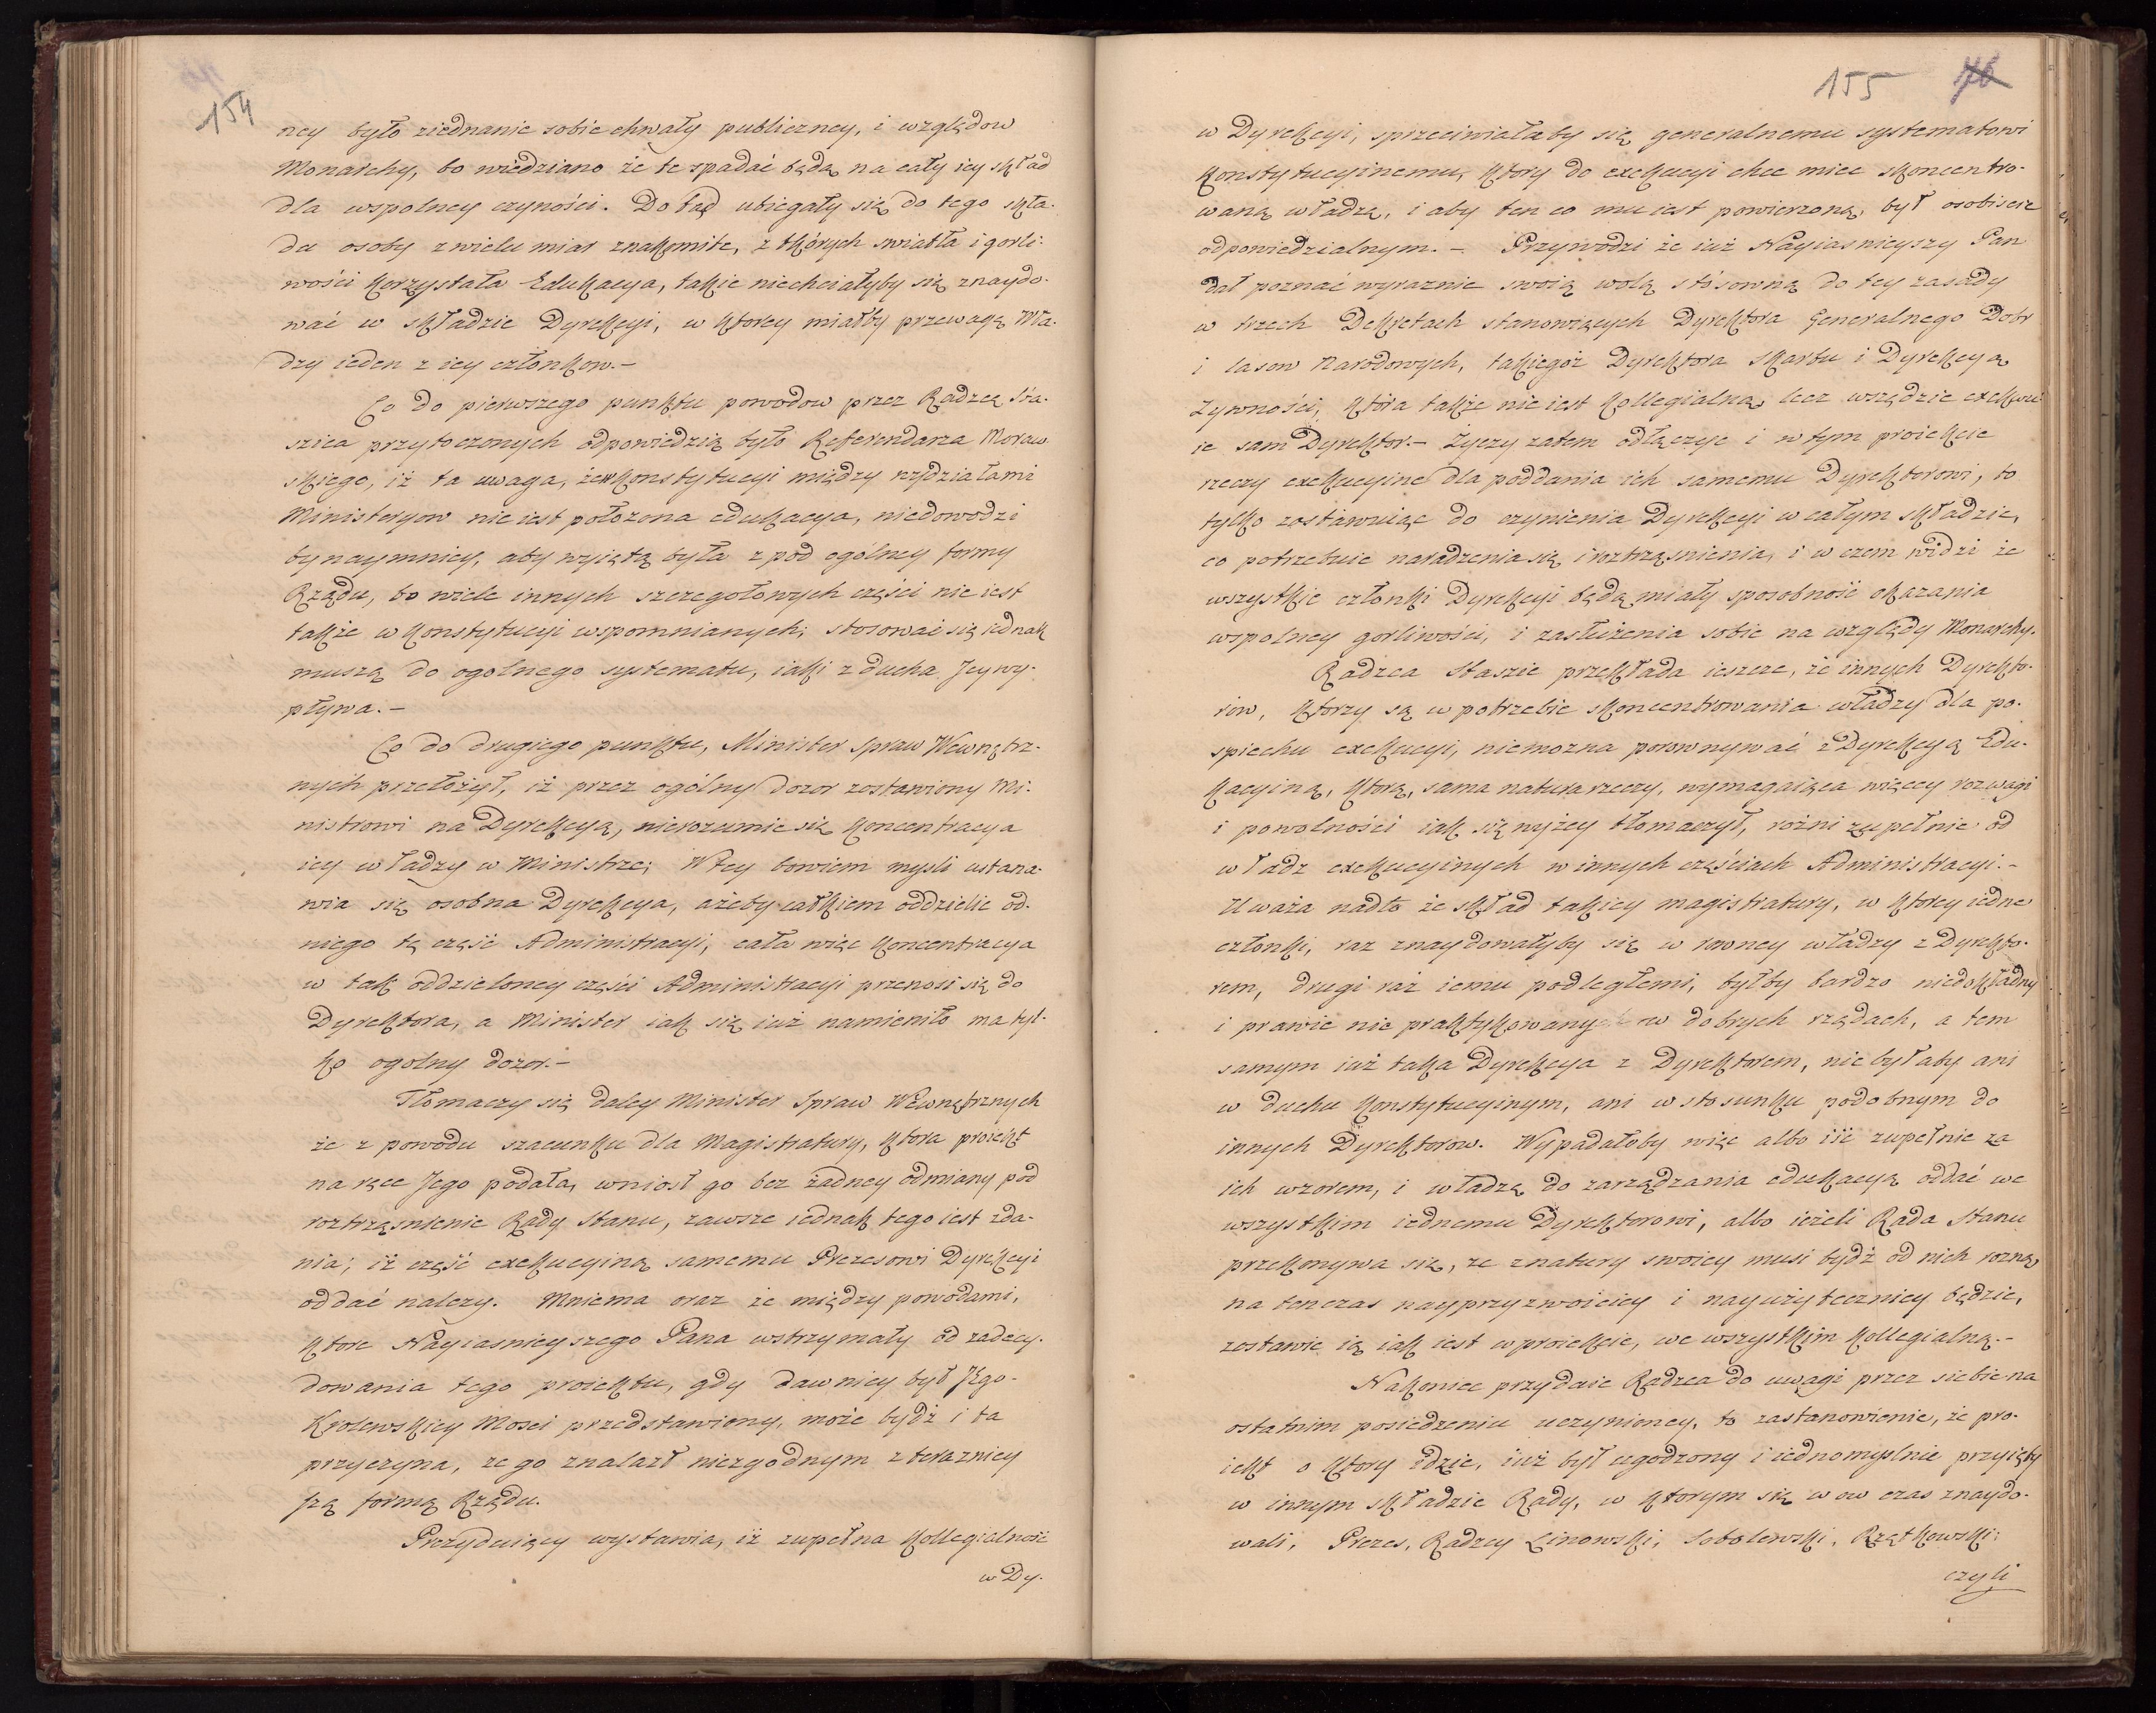 154
ney było ziednanie sobie chwały publiczney, i względow
Monarchy, bo wiedziano że te spadać będą na cały iey skład
dla wspolney czynności. Dotąd ubiegały się do tego skła-
du osoby z wielu miar znakomite, z których swiatła i gorli-
wości korzystała Edukacya, takie niechciałyby się znaydo-
wać w składzie Dyrekcyi, w ktorey miałby przewagę Wła-
dzy ieden z iey członkow.-
Co do pierwszego punktu powodow przez Radzcę Sta-
szica przytoczonych odpowiedzią było Referendarza Moraw
skiego, iż ta uwaga, że w konstytucyi między wydziałami
Ministeryow nie iest położona edukacya, niedowodzi
bynaymniey, aby wyiętą była z pod ogólney formy
Rządu, bo wiele innych szczegołowych części nie iest
także w konstytucyi wspomnianych; stosować się iednak
muszą do ogolnego systematu, iaki z ducha Jey wy-
pływa.-
Co do drugiego punktu, Minister Spraw Wewnętrz-
nych przełożył, iż przez ogólny dozor zostawiony Mi-
nistrowi na Dyrekcyą, nierozumie się koncentracya
iey władzy w Ministrze; W tey bowiem mysli ustana-
wia się osobna Dyrekcya, ażeby całkiem oddzielic od
niego tę część Administracyi, cała więc koncentracya
w tak oddzieloney części Administracyi przenosi się do
Dyrektora, a Minister iak się iuż namieniło ma tyl-
ko ogolny dozor.-
Tłomaczy się daley Minister Spraw Wewnętrznych
że z powodu szacunku dla Magistratury, ktora proiekt
na ręce Jego podała, wniosł go bez żadney odmiany pod
roztrząsnienie Rady Stanu, zawsze iednak tego iest zda-
nia; iż część exekucyiną samemu Prezesowi Dyrekcyi
oddać należy. Mniema oraz że między powodami,
ktore Nayiasnieyszego Pana wstrzymały od zadecy-
dowania tego proiektu, gdy dawniey był Jego-
Krolewskiey Mosci przedstawiony, może bydź i ta
przyczyna, że go znalazł niezgodnym z terazniey
szą formą Rządu.
Prezyduiący wystawia, iż zupełna kollegialność
w Dy-
155 76
w Dyrekcyi, sprzeciwiałaby się generalnemu systematowi
konstytucyinemu, ktory do exekucyi chce miec skoncentro-
waną władzą, i aby ten co mu iest powierzoną, był osobiscie
odpowiedzialnym.- Przywodzi że iuż Nayiasnieyszy Pan
dał poznać wyraznie swoię wolą stósowną do tey zasady
w trzech Dekretach stanowiących Dyrektora Generalnego Dobr
i lasow Narodowych, takiegoż Dyrektora skarbu i Dyrekcyą
Żywności, ktòra także nie iest kollegialną, lecz wszędzie exekwu-
ie sam Dyrektor.- Życzy zatem odłączyc i w tym proiekcie
rzeczy exekucyine dla poddania ich samemu Dyrektorowi, to
tylko zostawuiąc do czynienia Dyrekcyi w całym składzie,
co potrzebuie naradzenia się i roztrząsnienia, i w czem widzi że
wszystkie członki Dyrekcyi będą miały sposobność okazania
wspolney gorliwości, i zasłużenia sobie na względy Monarchy.
Radzca Staszic przekłada ieszcze, że innych Dyrekto-
row, ktorzy są w potrzebie skoncentrowania władzy dla po-
spiechu exekucyi, niemozna porownywać z Dyrekcyą Edu-
kacyiną, ktorą, sama natura rzeczy, wymagaiąca więcey rozwagi
i powolności iak się wyżey tłomaczył, rożni zupełnie od
władz exekucyinych w innych częściach Administracyi.-
Uważa nadto że skład takiey magistratury, w ktorey iedne
członki, raz znaydowałyby się w rowney władzy z Dyrekto-
rem, drugi raz iemu podległemi, byłby bardzo niedokładny
i prawie nie praktykowany w dobrych rządach, a tem
samym iuż taka Dyrekcya z Dyrektorem, nie byłaby ani
w duchu konstytucyinym, ani w stosunku podobnym do
innych Dyrektorow. Wypadałoby więc albo iść zupełnie za
ich wzorem, i władzę do zarządzania edukacyą oddać we
wszystkim iednemu Dyrektorowi, albo ieżeli Rada Stanu
przekonywa się, że z natury swoiey musi bydź od nich rozną
na tenczas nayprzyzwoiciey i nayużyteczniey będzie,
zostawic ią iak iest w proiekcie, we wszystkim kollegialną.-
Nakoniec przydaie Radzca do uwagi przez siebie na
ostatnim posiedzeniu uczynioney, to zastanowienie, że pro-
iekt o ktory idzie, iuż był ugodzony i iednomyslnie przyięty
w innym składzie Rady, w ktorym się wow czas znaydo-
wali, Prezes, Radzcy Linowski, Sobolewski, Rzętkowski;
czyli